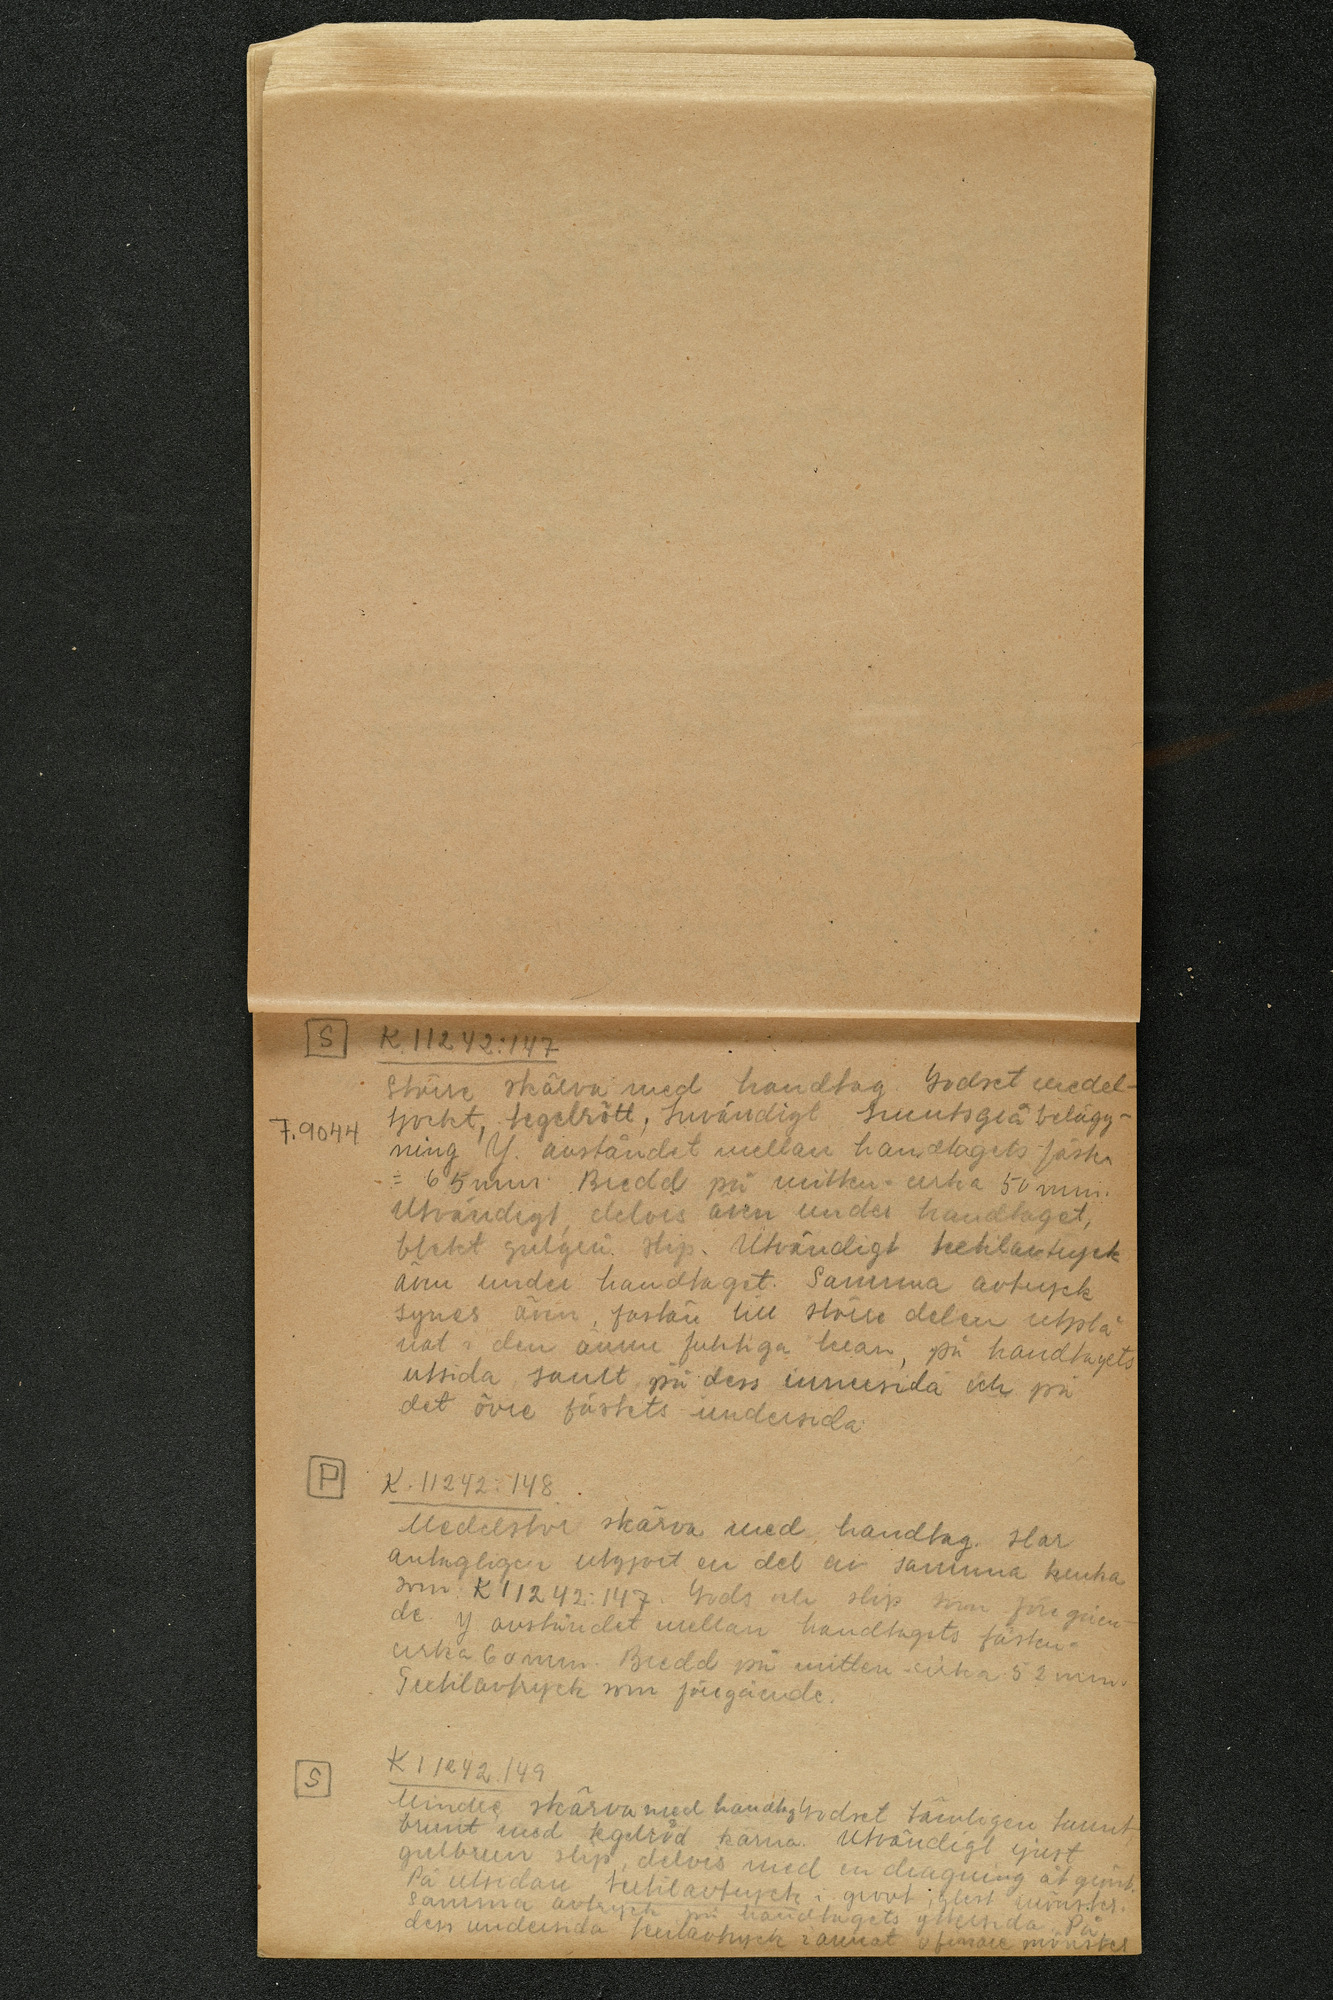 S K.11242:147
Större skärva med handtag. Godset medel-
7.9044 tjockt, tegelrött, invändigt smutsgrå beläg-
ning. Y. avståndet mellan handtagets fäste
= 65 mm. Bredd på mitten = cirka 50 mm.
Utvändigt, delvis även under handtaget,
blekt gulgrå slip. Utvändigt textilavtryck
även under handtaget. Samma avtryck
synes även, fastän till större delen utplå
nat i den ännu fuktiga leran, på handtagets
utsida samt på dess innersida och på
det övre fästets undersida
P K.11242:148
Medelstor skärva med handtag. Har
antagligen utgjort en del av samma kruka
som K11242:147. Gods och slip som föregåen-
de. Y avståndet mellan handtagets fästen =
cirka 60 mm. Bredd på mitten = cirka 52 mm.
Textilavtryck som föregående.
S K11242.149
Mindre skärva med handtag Godset tämligen tunnt
brunt med tegelröd kärna. Utvändigt ljust
gulbrun slip, delvis med en dragning åt grönt.
På utsidan textilavtryck i grovt, glest mönster.
Samma avtryck på handtagets yttersida. På
dess undersida textilavtryck i annat o finare mönster